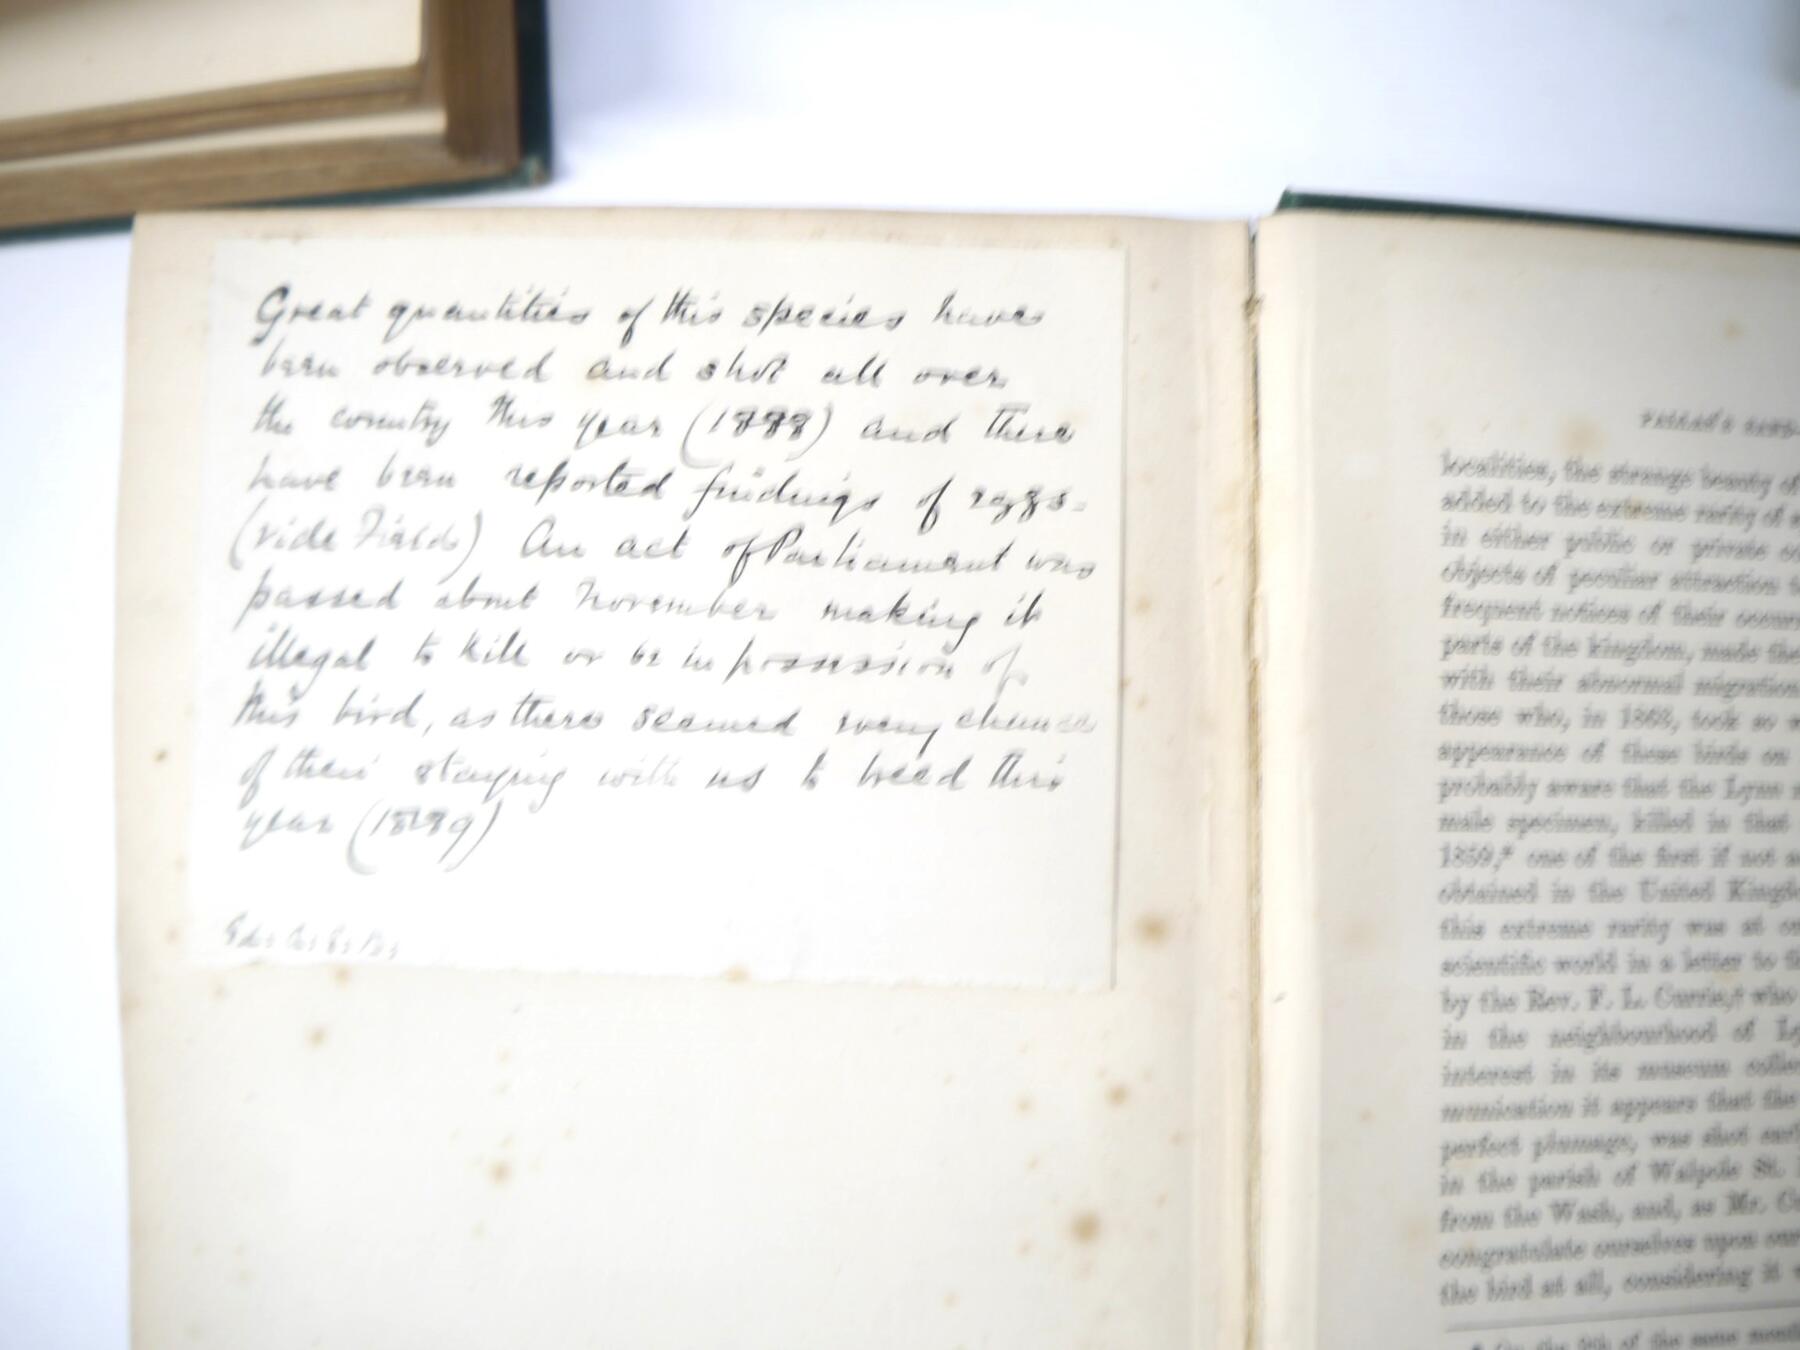 Great quantities of this species have
been observed and shot all over
the country this year (1888) and there
have been reported findings of eggs -
(vide Field) An act of Parliament was
passed about November making it
illegal to kill or be in possession of
this bird, as there seemed every chance
of their staying with us to breed this
year (1889)
PALLAS'S SAND-
localities, the strange beauty of
added to the extreme rarity of
in either public or private
objects of peculiar attraction
frequent notices of their
parts of the kingdom, made
with their abnormal migration
those who, in 1863, took so
appearance of these birds on
probably aware that the Lynn
male specimen, killed in that
1859,* one of the first if not
obtained in the United
this extreme rarity was at
scientific world in a letter to
by the Rev. F. L. Currie,† who
in the neighbourhood of
interest in its museum
munication it appears that the
perfect plumage, was shot
in the parish of Walpole St.
from the Wash, and, as Mr.
congratulate ourselves upon our
the bird at all, considering it
of the same